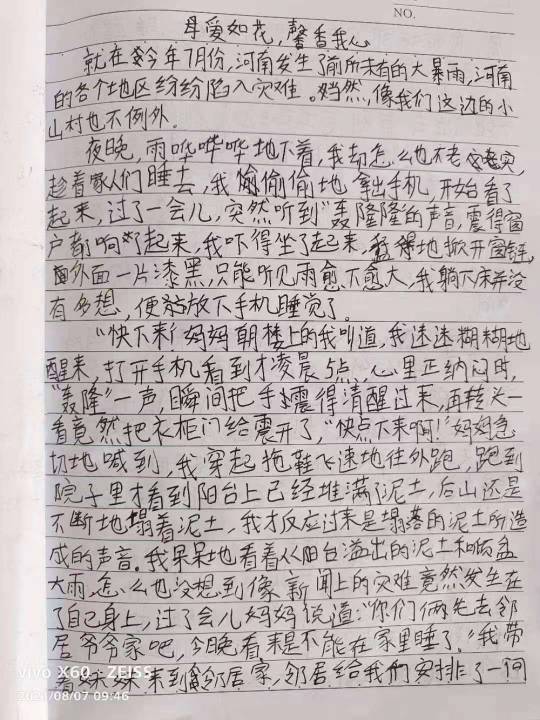 NO.
母爱如花，馨香我心
就在今年7月份，河南发生了前所未有的大暴雨，河南
的各个地区纷纷陷入灾难。当然，像我们这边的小
山村也不例外.
夜晚，雨哗哗哗地下着，我却怎么也不老实，
趁着家人们睡去，我偷偷地拿出手机开始看了
起来，过了一会儿，突然听到"轰隆隆的声音，震得窗
户都响了起来，我吓得坐了起来，猛得地掀开窗链，
外面一片漆黑，只能听见雨愈下愈大，我躺下床并没
有多想，便放下手机睡觉了。
"快下来！妈妈朝楼上的我叫道，我迷迷糊糊地
醒来，打开手机看到才凌晨5点，心里正纳闷时，
"轰隆"一声，瞬间把我震得清醒过来，再转头一
看竟然把衣柜门给震开了，"快点下来啊！"妈妈急
切地喊到，我穿起拖鞋飞速地往外跑，跑到
院子里才看到阳台上已经堆满了泥土，后山还是
不断地塌着泥土，我才反应过来是塌落的泥土所造
成的声音。我呆呆地看着从阳台溢出的泥土和倾盆
大雨，怎么也没想到像新闻上的灾难竟然发生在
了自己身上，过了会儿妈妈说道："你们俩先去邻
居爷爷家吧，今晚看来是不能在家里睡了。"我带
着妹妹来到邻居家，邻居给我们安排了一间
vivo X60 · ZEISS
2021/08/07 09:46